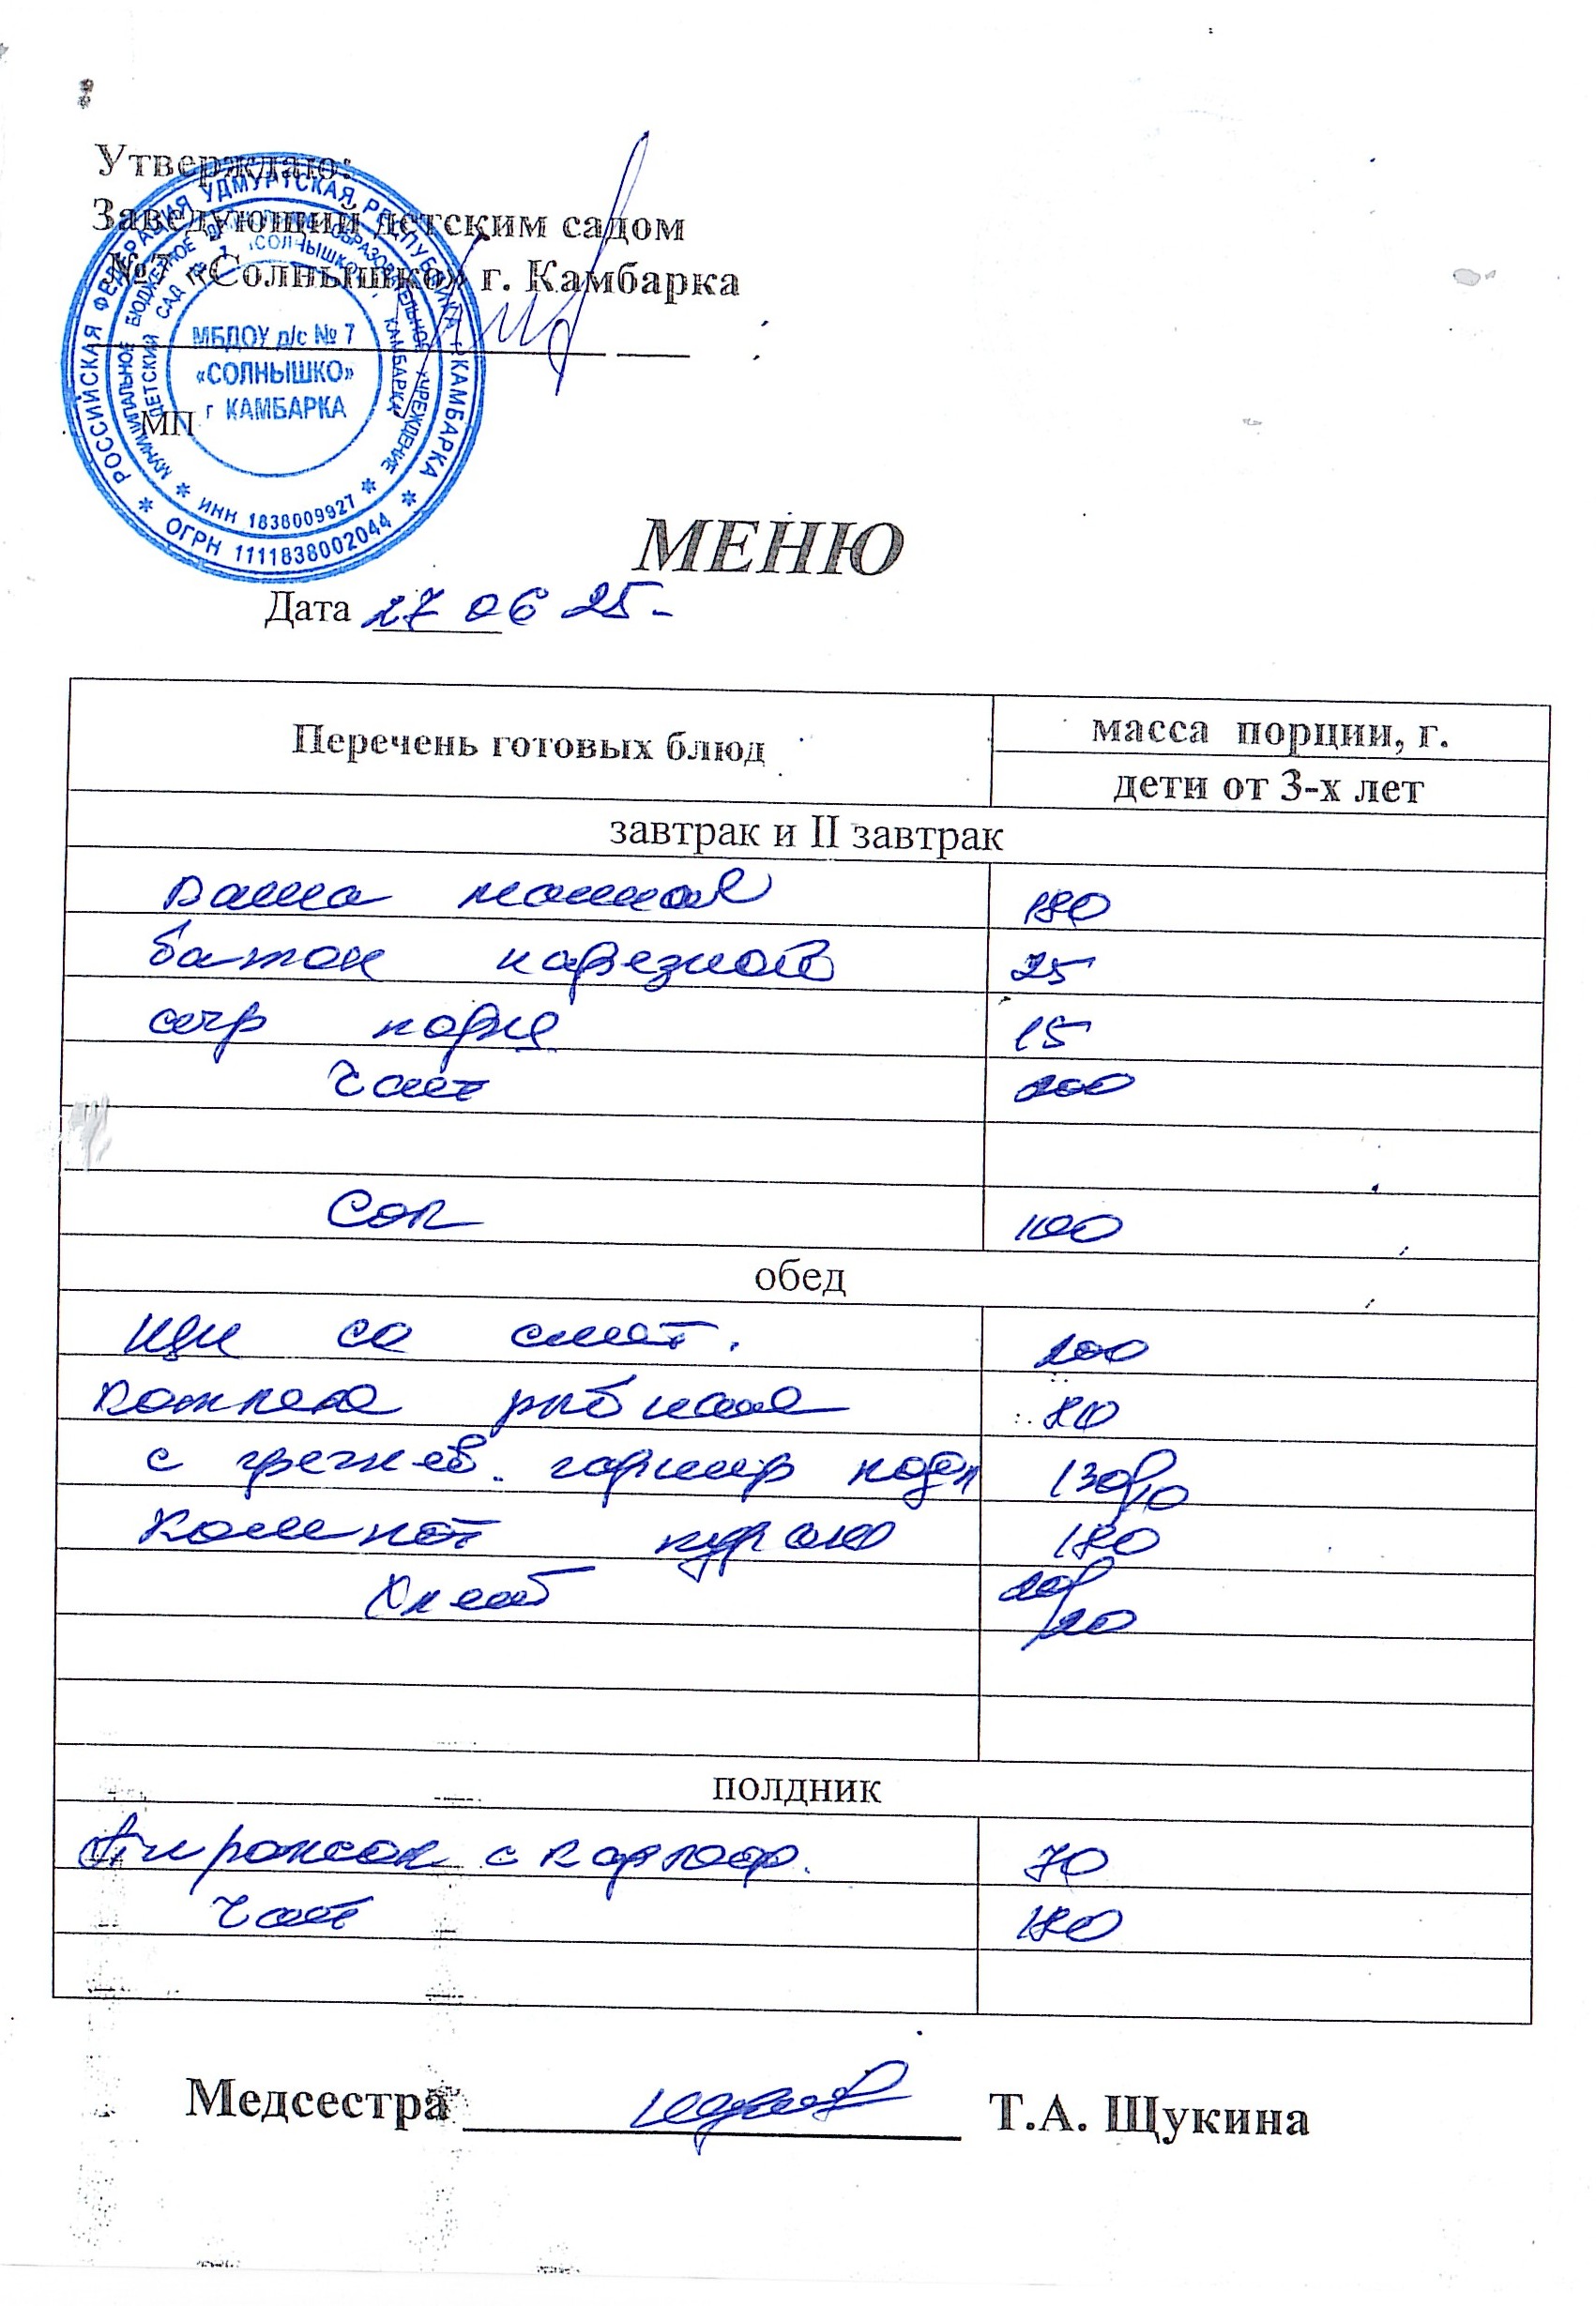 Утверждаю:
Заведующий детским садом
№7 «Солнышко» г. Камбарка
МП
РОССИЙСКАЯ ФЕДЕРАЦИЯ УДМУРТСКАЯ РЕСПУБЛИКА г КАМБАРКА
МУНИЦИПАЛЬНОЕ БЮДЖЕТНОЕ ДОШКОЛЬНОЕ ОБРАЗОВАТЕЛЬНОЕ УЧРЕЖДЕНИЕ
ДЕТСКИЙ САД № 7 «СОЛНЫШКО» г. КАМБАРКА
МБДОУ д/с № 7
«СОЛНЫШКО»
г КАМБАРКА
* ИНН 1838009927 *
* ОГРН 1111838002044 *
МЕНЮ
Дата 27 06 25-
Перечень готовых блюд масса порции, г.
дети от 3-х лет
завтрак и II завтрак
каша манная 180
батон нарезной 25
сыр порц 15
Чай 200
Сок 100
обед
щи со смет. 200
котлета рыбная 80
с гречнев. гарнир подл 130/10
Компот кураги 180
Хлеб 20/20
полдник
Пирожок с картоф. 70
Чай 180
Медсестра Т.А. Щукина